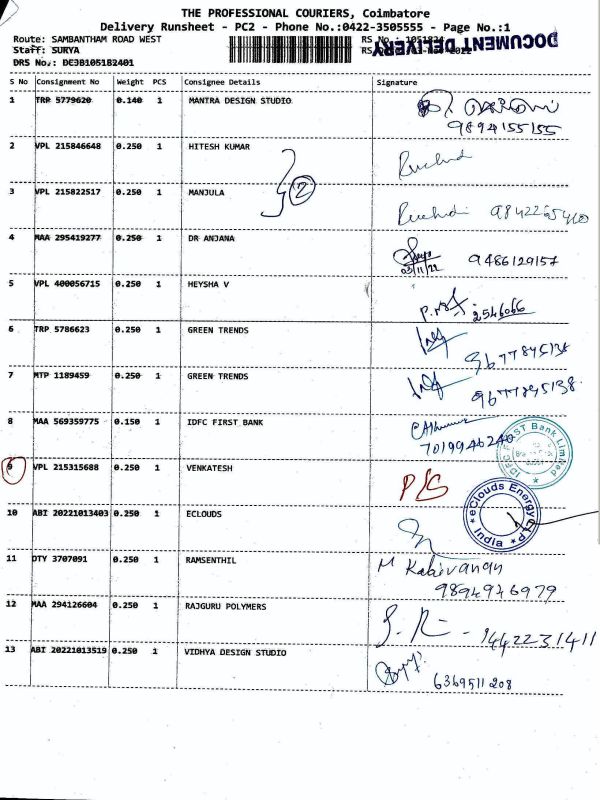 THE PROFESSIONAL COURIERS, Coimbatore
Delivery Runsheet - PC2 - Phone No.:0422-3505555 - Page No.:1
Route: SAMBANTHAM ROAD WEST
RS No.: 1051824
Staff: SURYA
DOCUMENT DELIVERY
DRS No.: DE3B105182401
S No Consignment No Weight PCS Consignee Details Signature
1 TRP 5779620 0.140 1 MANTRA DESIGN STUDIO
9894155155
2 VPL 215846648 0.250 1 HITESH KUMAR
2
3 VPL 215822517 0.250 1 MANJULA
4 MAA 295419277 0.250 1 DR ANJANA 9486129157
03/11/22
5 VPL 400056715 0.250 1 HEYSHA V
2546066
6 TRP 5786623 0.250 1 GREEN TRENDS
9677845138
7 MTP 1189459 0.250 1 GREEN TRENDS
9677845138
8 MAA 569359775 0.150 1 IDFC FIRST BANK
7019946240
IDFC FIRST Bank Limited
9 VPL 215315688 0.250 1 VENKATESH P/S
10 ABI 20221013403 0.250 1 ECLOUDS
eClouds Energy
India
11 DTY 3707091 0.250 1 RAMSENTHIL M Kabivanan
9894976979
12 MAA 294126604 0.250 1 RAJGURU POLYMERS
9442231411
13 ABI 20221013519 0.250 1 VIDHYA DESIGN STUDIO
6369511208